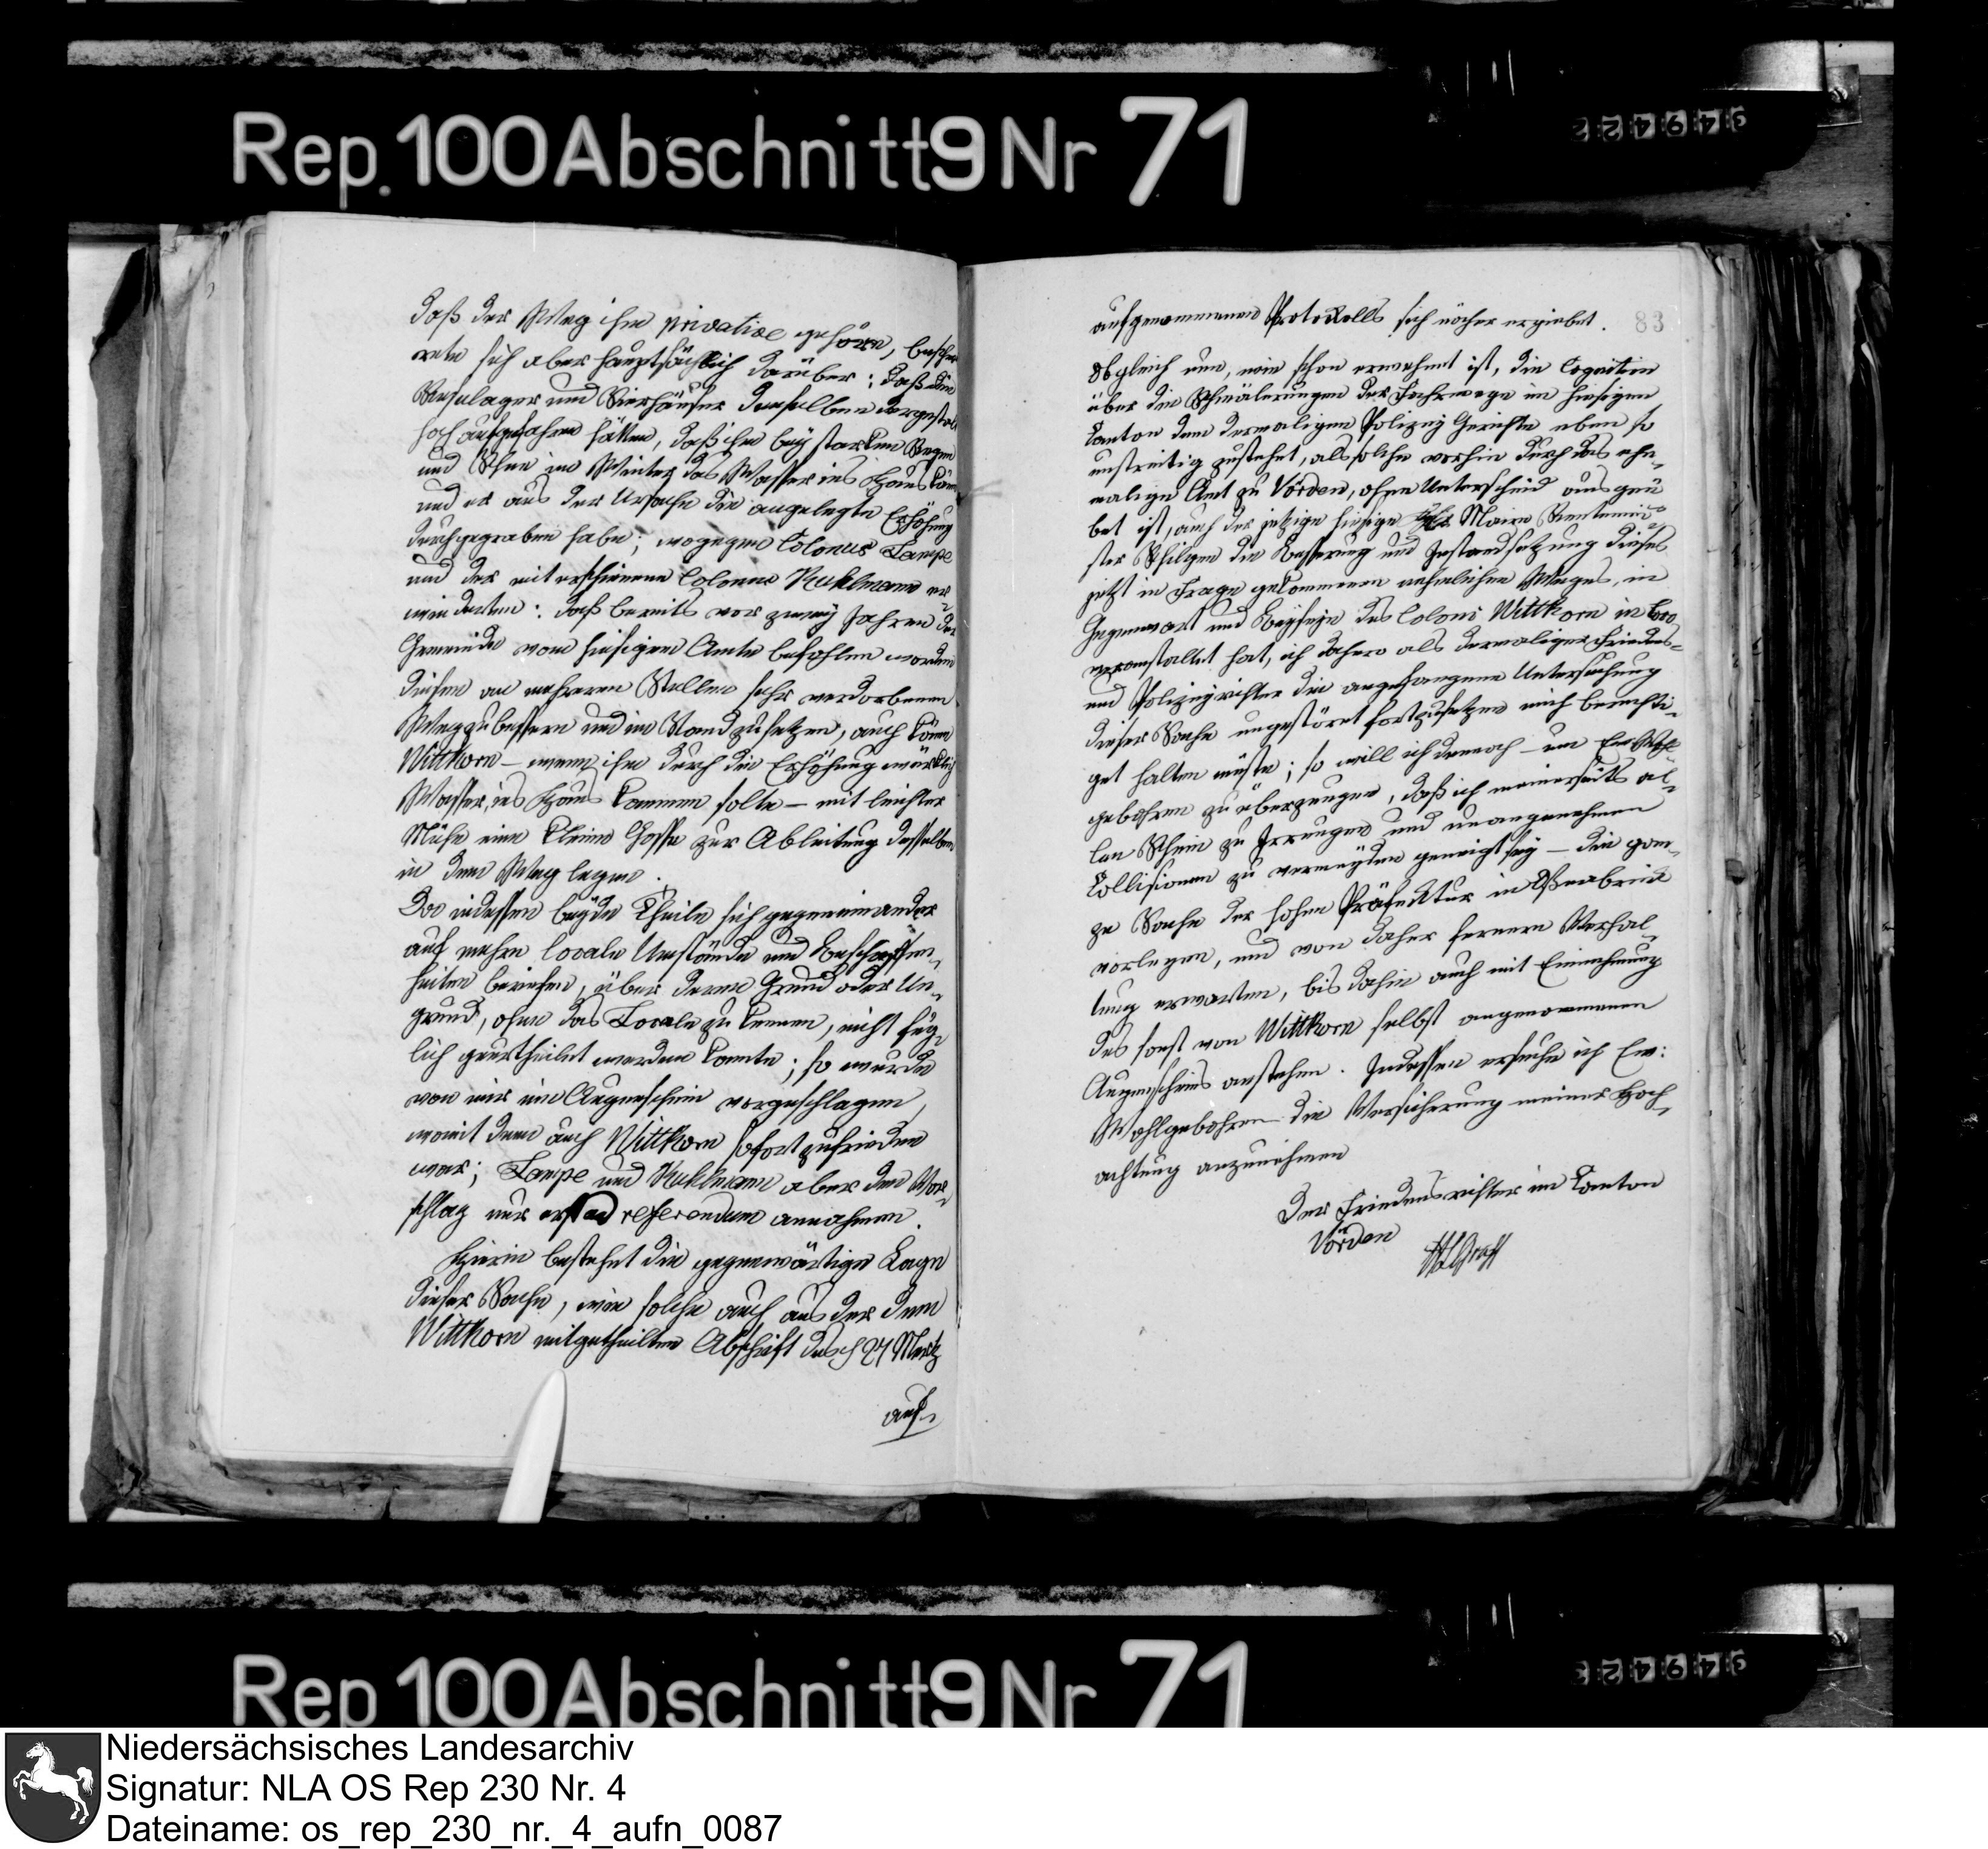 Rep. 100 Abschnitt 9 Nr 71
daß der Weg ihm privative gehöre, beschwe
rete sich aber hauptsächlich darüber; daß die
und Bierhäuser denselben dergestalt
hoch aufgefahren hätten, daß ihm bey starken Regen
und Schnee im Winter das Wasser ins Haus käme
und er aus der Ursache die angelegte Erhöhung
durchgegraben habe; wogegen Colonus Lampe
und der miterschienene Colonus Kuhlmann er
wiederten: daß bereits vor zwey Jahren der
Gemeinde vom hiesigen Amte befohlen worden
diesen an mehreren Stellen sehr verdorbenen
Weg zu bessern und in Stand zu setzen, auch könne
Wittkorn – wenn ihm durch die Erhöhung würklich
Wasser ins Haus kommen solte – mit leichter
Mühe eine kleine Gosse zur Ableitung desselben
in dem Weg legen.
Da indessen beyde Theile sich gegeneinander
auf mehre locale Umstände und Beschaffen,
heiten beriefen, über deren Grund oder Un,
grund, ohne das Locale zu kennen, nicht füg,
lich geurtheilet werden konte; so wurde
von mir ein Augenschein vorgeschlagen,
womit denn auch Wittkorn sofort zufrieden
war; Lampe und Kuhlmann aber den Vor,
schlag nur erst ad referendum annahmen.
Hierin bestehet die gegenwärtige Lage
dieser Sache, wie solche auch aus der dem
Wittkorn mitgetheilten Abschrift des 21 Mertz
auf,
83
aufgenommenen Protokolls sich näher ergiebet.
Obgleich nun, wie schon erwehnt ist, die Cognition
über die Schmälerungen der Fahrwege im hiesigen
Canton dem dermaligen Polizey Gerichte eben so
unstreitig zustehet, als solche vorhin durch das ehe,
malige Amt zu Vörden, ohne Unterscheid ausgeü
bet ist, auch der jetzige hiesige Maire Rentemei,
ster Schilgen die Besserung und Instandsetzung dieses
jetzt in Frage gekommenen nehmlichen Weges, in
Gegenwart und Beyseyn des Coloni Wittkorn in
veranstaltet hat, ich dahero als dermaliger Friedens-
und Polizeyrichter die angefangene Untersuchung
dieser Sache ungestöret fortzusetzen mich berechti,
get halten müste; so will ich dennoch – um Ew Wohl
gebohren zu überzeugen, daß ich meinerseits al,
len Schein zu Irrungen und unangenehmen
Collisionen zu vermeyden geneigt sey – die gan,
ze Sache der hohen Präfektur in Osnabrück
vorlegen, und von daher fernere Verhal,
tung erwarten, bis dahin auch mit Einnehmung
des sonst von Wittkorn selbst angenommenen
Augenscheins anstehen. Indessen ersuche ich Ew:
Wohlgebohren die Versicherung meiner Hoch,
achtung anzunehmen
Der Friedensrichter im Canton
Vörden
Rep 100 Abschnitt 9 Nr 71
Niedersächsisches Landesarchiv
Signatur: NLA OS Rep 230 Nr. 4
Dateiname: os_rep_230_nr._4_aufn_0087